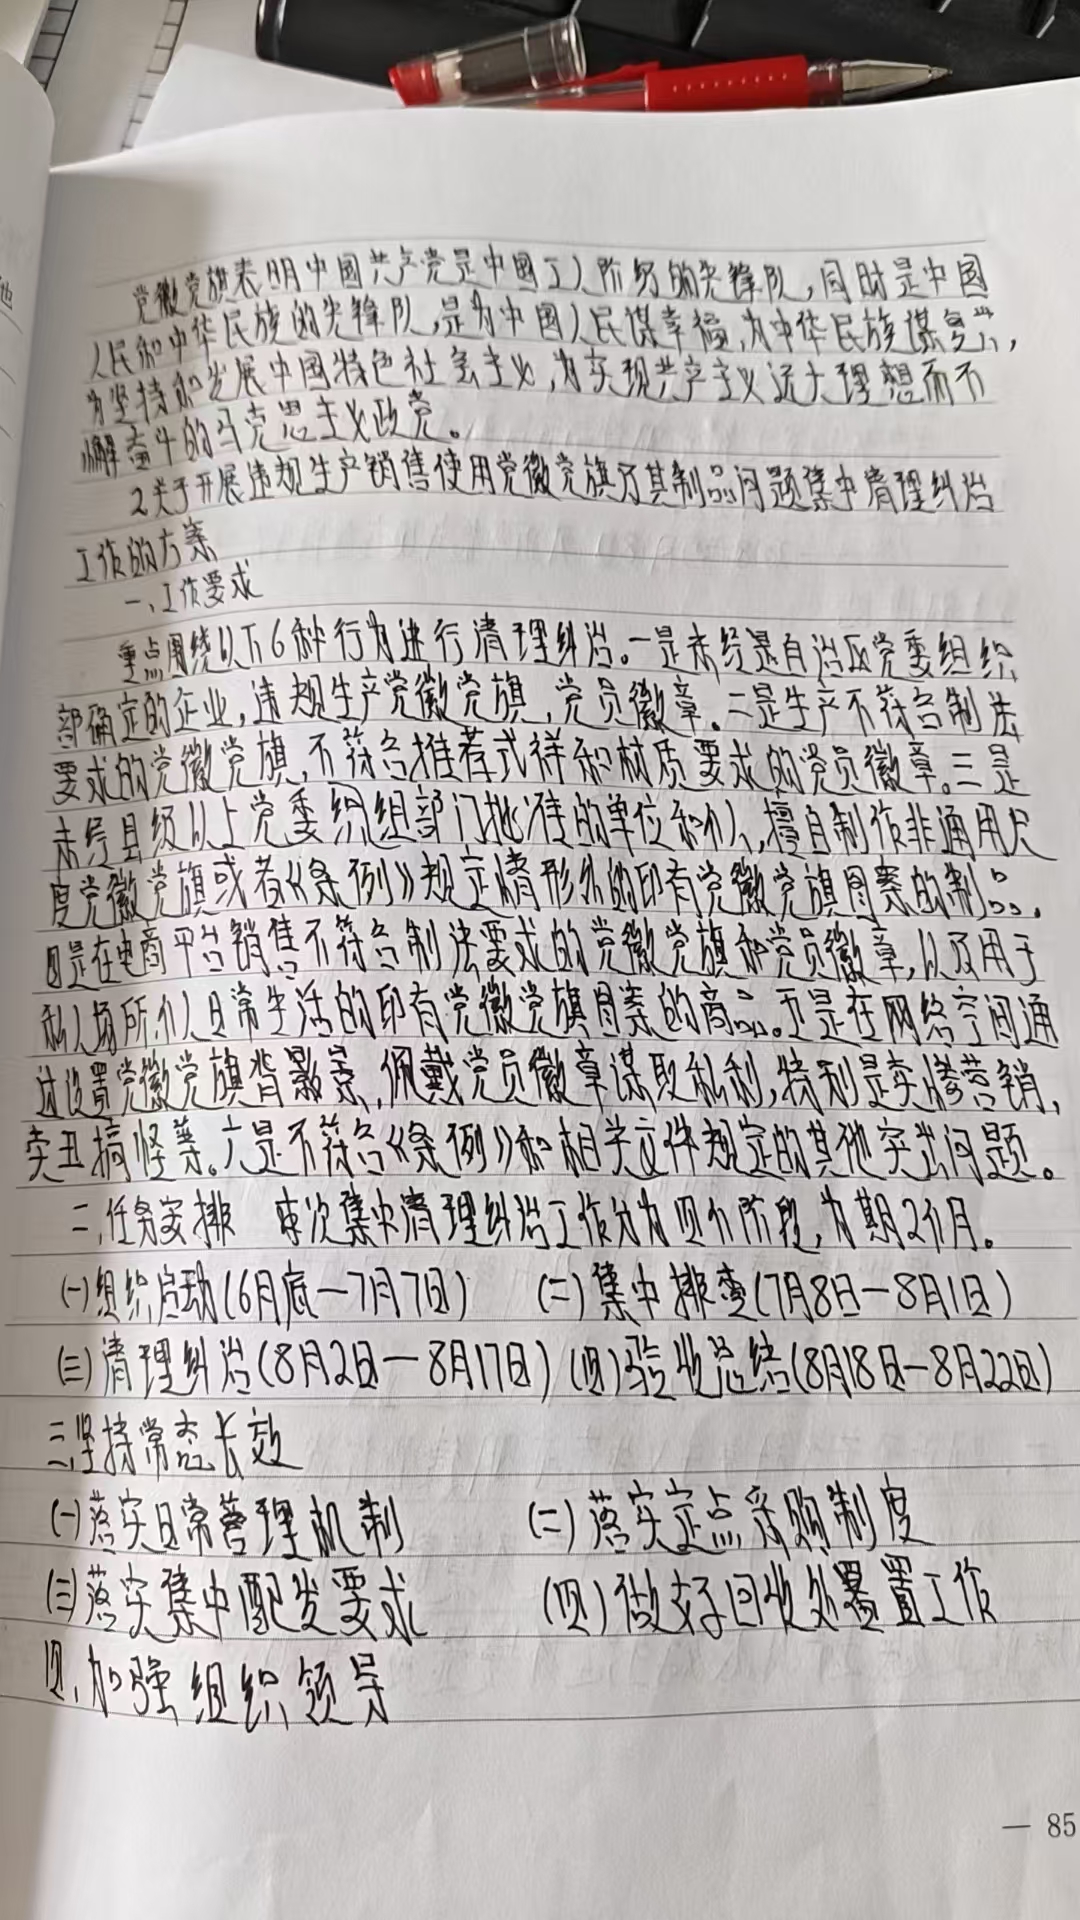 党徽党旗表明中国共产党是中国工人阶级的先锋队，同时是中国
人民和中华民族的先锋队，是为中国人民谋幸福，为中华民族谋复兴，
为坚持和发展中国特色社会主义，为实现共产主义远大理想而不
懈奋斗的马克思主义政党。
2.关于开展违规生产销售使用党徽党旗及其制品问题集中清理纠治
工作的方案
一、工作要求
重点围绕以下6种行为进行清理纠治。一是未经是自治区党委组织
部确定的企业，违规生产党徽党旗，党员徽章。二是生产不符合制法
要求的党徽党旗，不符合推荐式样和材质要求的党员徽章。三是
未经县级以上党委织组部门批准的单位和个人，擅自制作非通用尺
度党徽党旗或者《条例》规定情形外的印有党徽党旗图案的制品。
四是在电商平台销售不符合制法要求的党徽党旗和党员徽章，以及用于
私人场所，个人日常生活的印有党徽党旗图案的商品。五是在网络空间通
过设置党徽党旗背景，佩戴党员徽章谋取私利，特别是卖惨营销，
卖丑搞怪等。六是不符合《条例》和相关文件规定的其他突出问题。
二、任务安排 本次集中清理纠治工作分为四个阶段，为期2个月。
(一)组织启动(6月底—7月7日) (二)集中排查(7月8日—8月1日)
(三)清理纠治(8月2日—8月17日) (四)验收总结(8月18日—8月22日)
三、坚持常态长效
(一)落实日常管理机制 (二)落实定点采购制度
(三)落实集中配发要求 (四)做好回收处置工作
四、加强组织领导
— 85